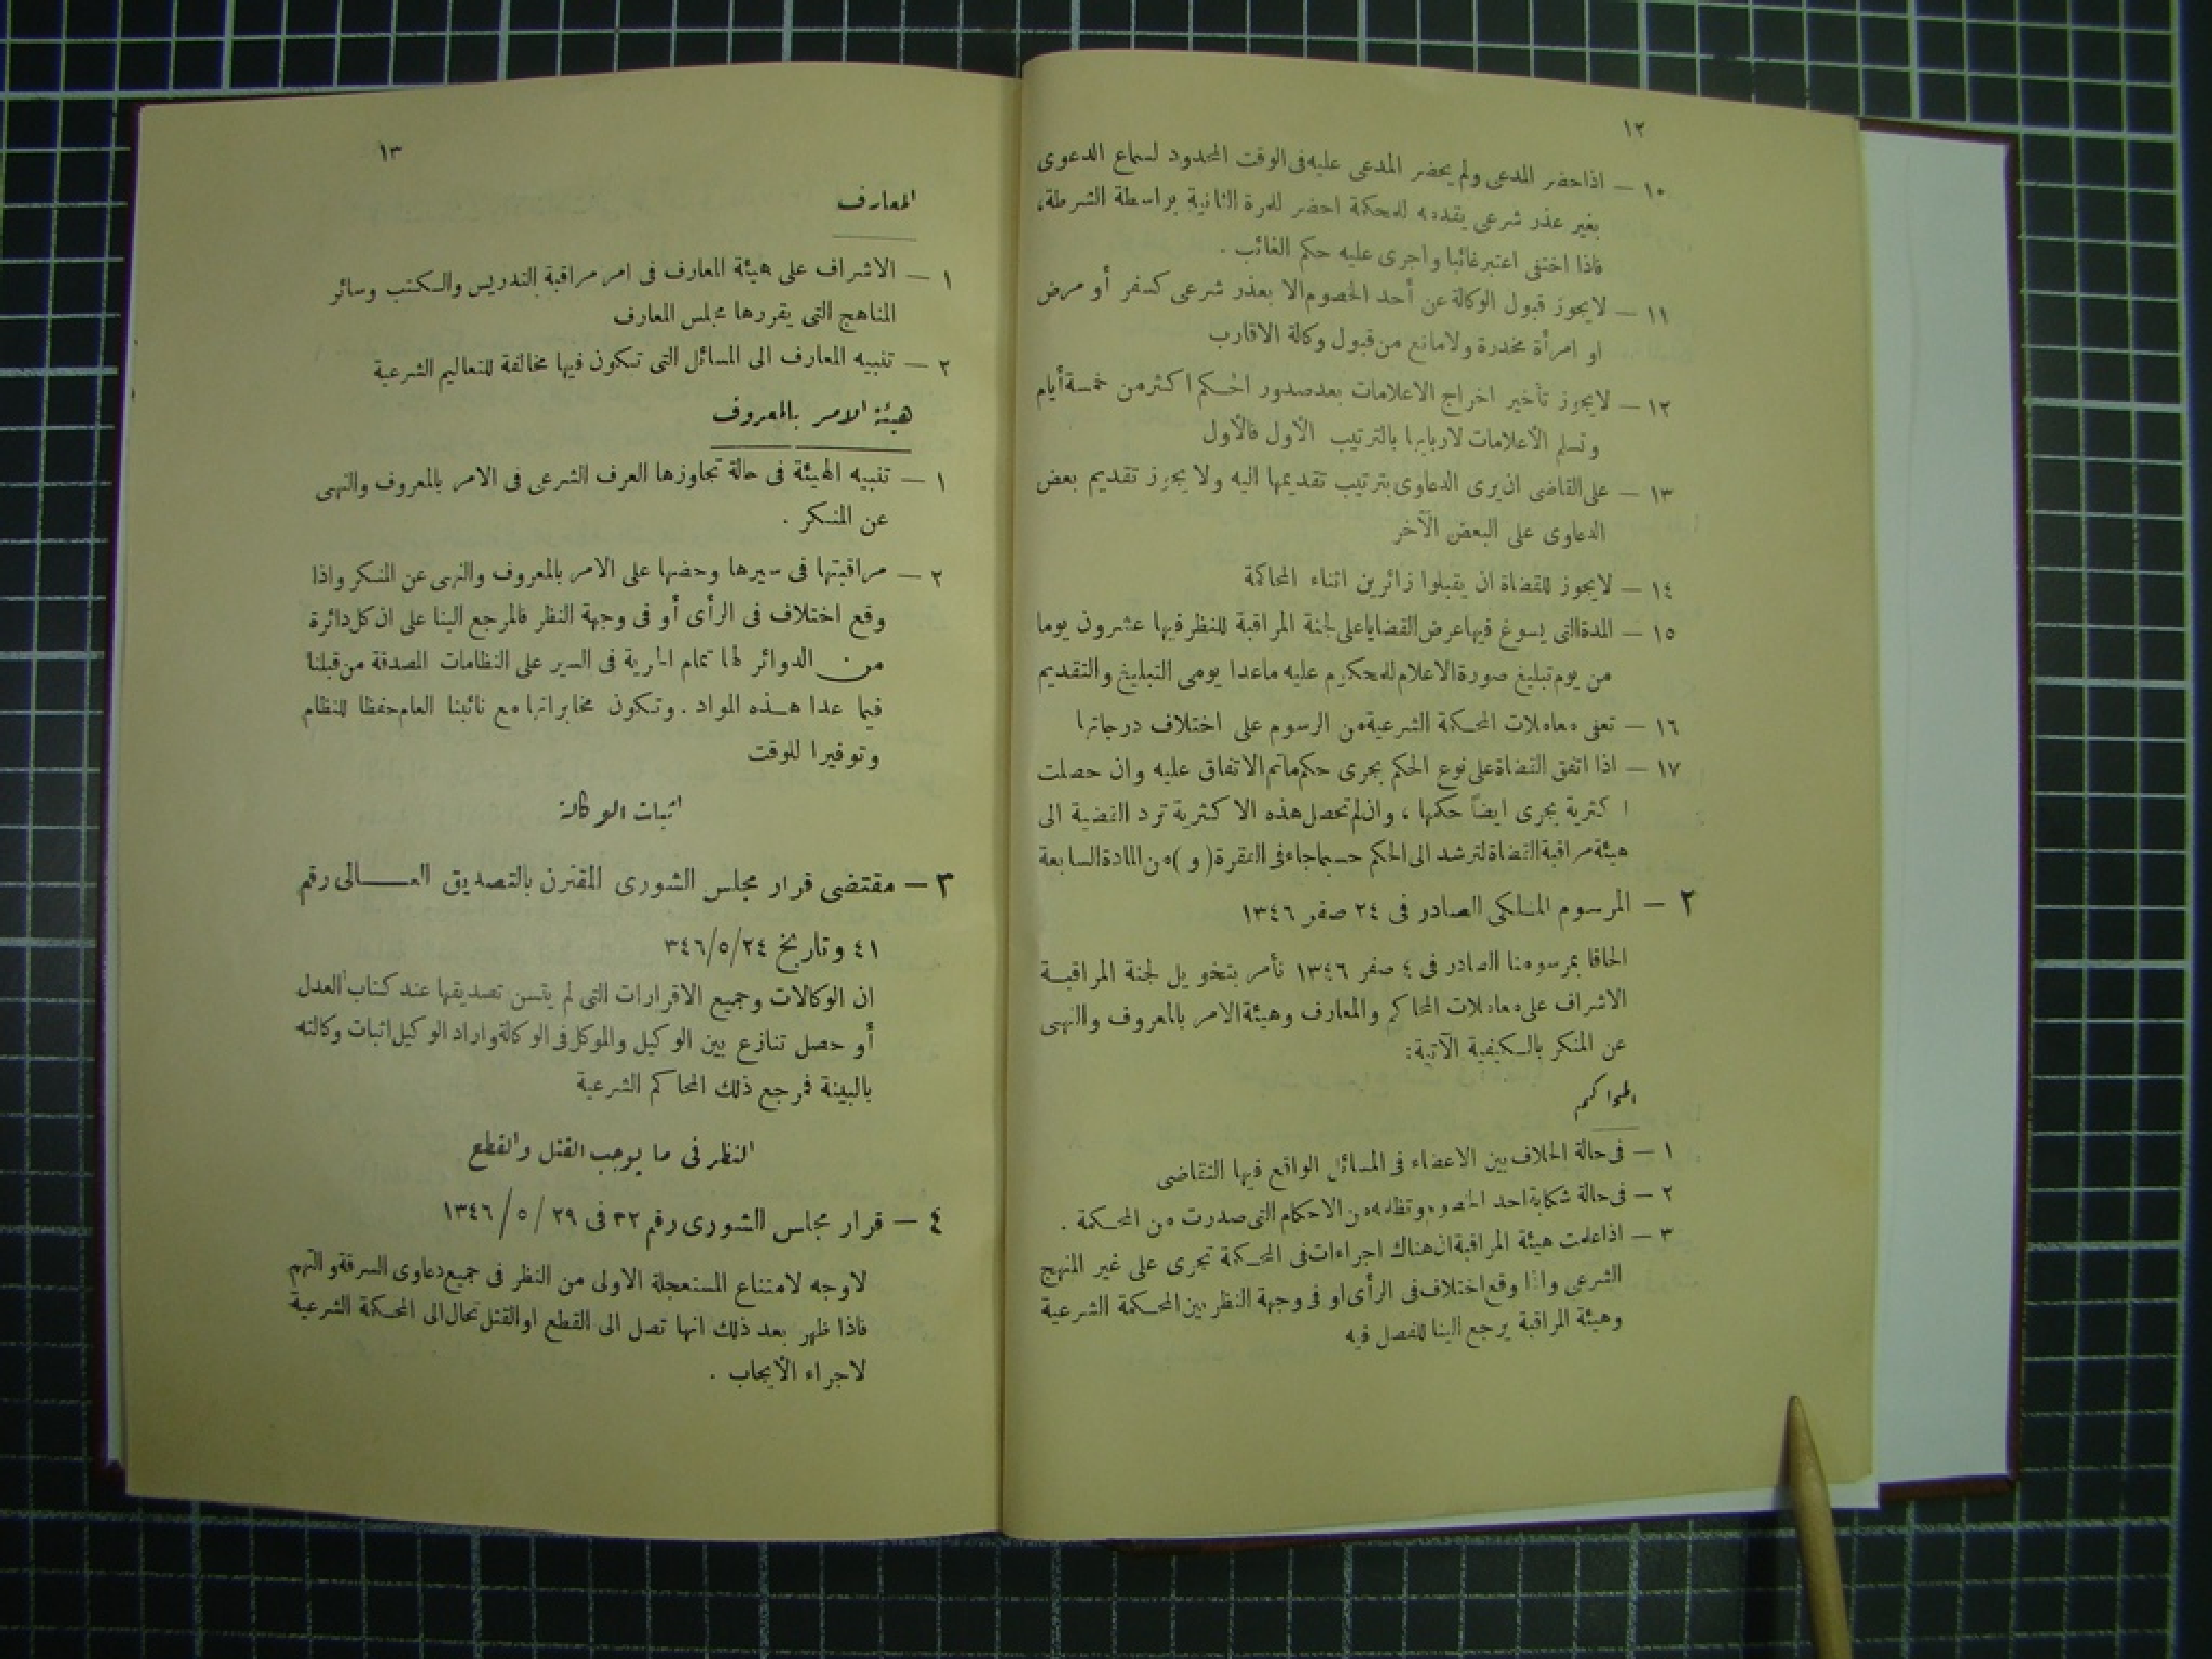 ١٢
١٠ — اذا حضر المدعى ولم يحضر المدعى عليه فى الوقت المحدود لسماع الدعوى
بغير عذر شرعى يقدمه للمحكمة احضر للمرة الثانية بواسطة الشرطة،
فاذا اختفى اعتبر غائبا واجرى عليه حكم الغائب .
١١ — لايجوز قبول الوكالة عن أحد الخصوم الا بعذر شرعى كسفر أو مرض
او امرأة مخدرة ولامانع من قبول وكالة الاقارب
١٢ — لايجوز تأخير اخراج الاعلامات بعد صدور الحكم اكثر من خمسة أيام
وتسلم الأعلامات لاربابها بالترتيب الأول فالأول
١٣ — على القاضى ان يرى الدعاوى بترتيب تقديمها اليه ولا يجوز تقديم بعض
الدعاوى على البعض الآخر
١٤ — لايجوز للقضاة ان يقبلوا زائرين اثناء المحاكمة
١٥ — المدة التى يسوغ فيها عرض القضايا على لجنة المراقبة للنظر فيها عشرون يوما
من يوم تبليغ صورة الاعلام للمحكوم عليه ماعدا يومى التبليغ والتقديم
١٦ — تعفى معاملات المحكمة الشرعية من الرسوم على اختلاف درجاتها
١٧ — اذا اتفق القضاة على نوع الحكم يجرى حكم ماتم الاتفاق عليه وان حصلت
اكثرية يجرى ايضاً حكمها ، وان لم تحصل هذه الاكثرية ترد القضية الى
هيئة مراقبة القضاة لترشد الى الحكم حسبما جاء فى الفقرة ( و ) من المادة السابعة
٢ — المرسوم الملكى الصادر فى ٢٤ صفر ١٣٤٦
الحاقا بمرسومنا الصادر فى ٤ صفر ١٣٤٦ نأمر بتخويل لجنة المراقبة
الاشراف على معاملات المحاكم والمعارف وهيئة الامر بالمعروف والنهى
عن المنكر بالكيفية الآتية:
المحاكم
١ — فى حالة الخلاف بين الاعضاء فى المسائل الواقع فيها التقاضى
٢ — فى حالة شكاية احد الخصوم وتظلمه من الاحكام التى صدرت من المحكمة .
٣ — اذا علمت هيئة المراقبة ان هناك اجراءات فى المحكمة تجرى على غير المنهج
الشرعى واذا وقع اختلاف فى الرأى او فى وجهة النظر بين المحكمة الشرعية
وهيئة المراقبة يرجع الينا للفصل فيه
١٣
المعارف
١ — الاشراف على هيئة المعارف فى امر مراقبة التدريس والكتب وسائر
المناهج التى يقررها مجلس المعارف
٢ — تنبيه المعارف الى المسائل التى تكون فيها مخالفة للتعاليم الشرعية
هيئة الامر بالمعروف
١ — تنبيه الهيئة فى حالة تجاوزها العرف الشرعى فى الامر بالمعروف والنهى
عن المنكر .
٢ — مراقبتها فى سيرها وحضها على الامر بالمعروف والنهى عن المنكر واذا
وقع اختلاف فى الرأى أو فى وجهة النظر فالمرجع الينا على ان كل دائرة
من الدوائر لها تمام الحرية فى السير على النظامات المصدقة من قبلنا
فيما عدا هذه المواد . وتكون مخابراتها مع نائبنا العام حفظا للنظام
وتوفيرا للوقت
اثبات الوكالة
٣ — مقتضى قرار مجلس الشورى المقترن بالتصديق العالى رقم
٤١ وتاريخ ٣٤٦/٥/٢٤
ان الوكالات وجميع الاقرارات التى لم يتسن تصديقها عند كتاب العدل
أو حصل تنازع بين الوكيل والموكل فى الوكالة واراد الوكيل اثبات وكالته
بالبينة فمرجع ذلك المحاكم الشرعية
النظر فى ما يوجب القتل والقطع
٤ — قرار مجلس الشورى رقم ٣٢ فى ٢٩ / ٥ / ١٣٤٦
لاوجه لامتناع المستعجلة الاولى من النظر فى جميع دعاوى السرقة والتهم
فاذا ظهر بعد ذلك انها تصل الى القطع او القتل تحال الى المحكمة الشرعية
لاجراء الأيجاب .